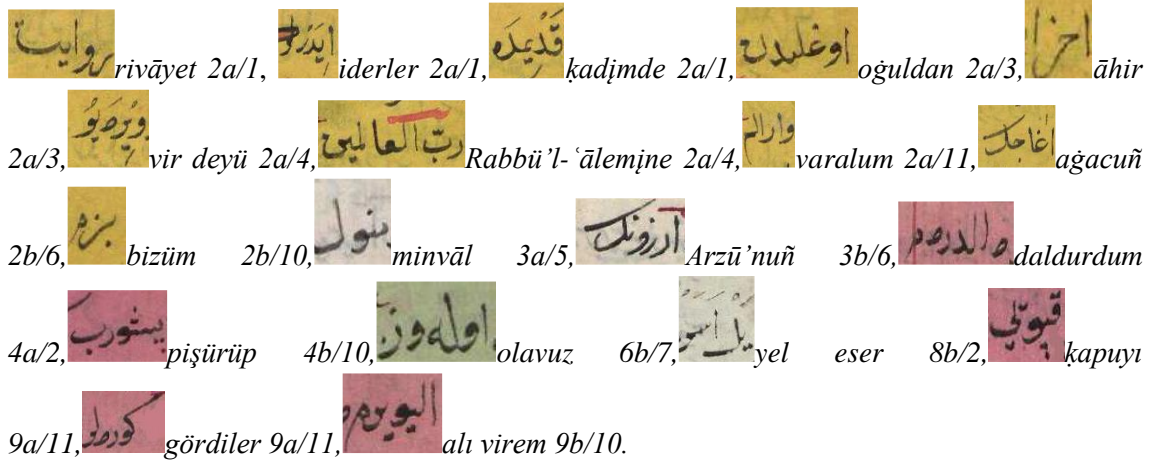 روايت rivāyet 2a/1, iderler 2a/1, قَدْيمدَه ķadįmde 2a/1, اوغليدن oġuldan 2a/3, اخر āhir
2a/3, vir deyü 2a/4, ربّ العالمين Rabbü’l- ʿālemįne 2a/4, varalum 2a/11, اغاجك aġacuñ
2b/6, بزم bizüm 2b/10, منول minvāl 3a/5, ارزونك Arzū’nuñ 3b/6, daldurdum
4a/2, pişürüp 4b/10, اوله وز olavuz 6b/7, yel eser 8b/2, ķapuyı
9a/11, gördiler 9a/11, اليويرم alı virem 9b/10.